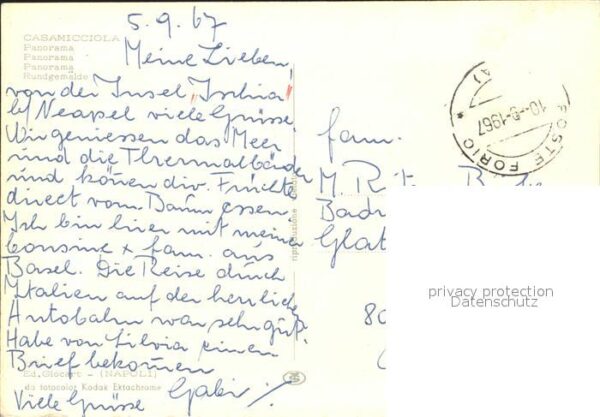 5.9.67
CASAMICCIOLA
Panorama
Panorama
Panorama
Rundgemälde
Meine Lieben,
von der Insel "Ischia"
b/ Neapel viele Grüsse.
Wir geniessen das Meer
und die Thermalbäder
und können div. Früchte
direct vom Baum essen.
Ich bin hier mit meiner
Cousine + Fam. aus
Basel. Die Reise durch
Italien auf der herrlichen
Autobahn war sehr gut.
Habe von Silvia einen
Brief bekommen
Ed. Glocart - (NAPOLI)
da fotocolor Kodak Ektachrome
Viele Grüsse Gabi
POSTE FORIO
10-9-1967
Fam.
M.
80
privacy protection
Datenschutz